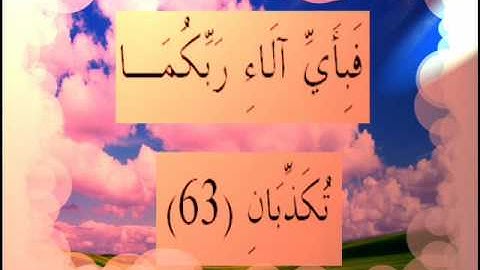 فَبِأَيِّ آلَاءِ رَبِّكُمَــا
تُكَذِّبَانِ (63)